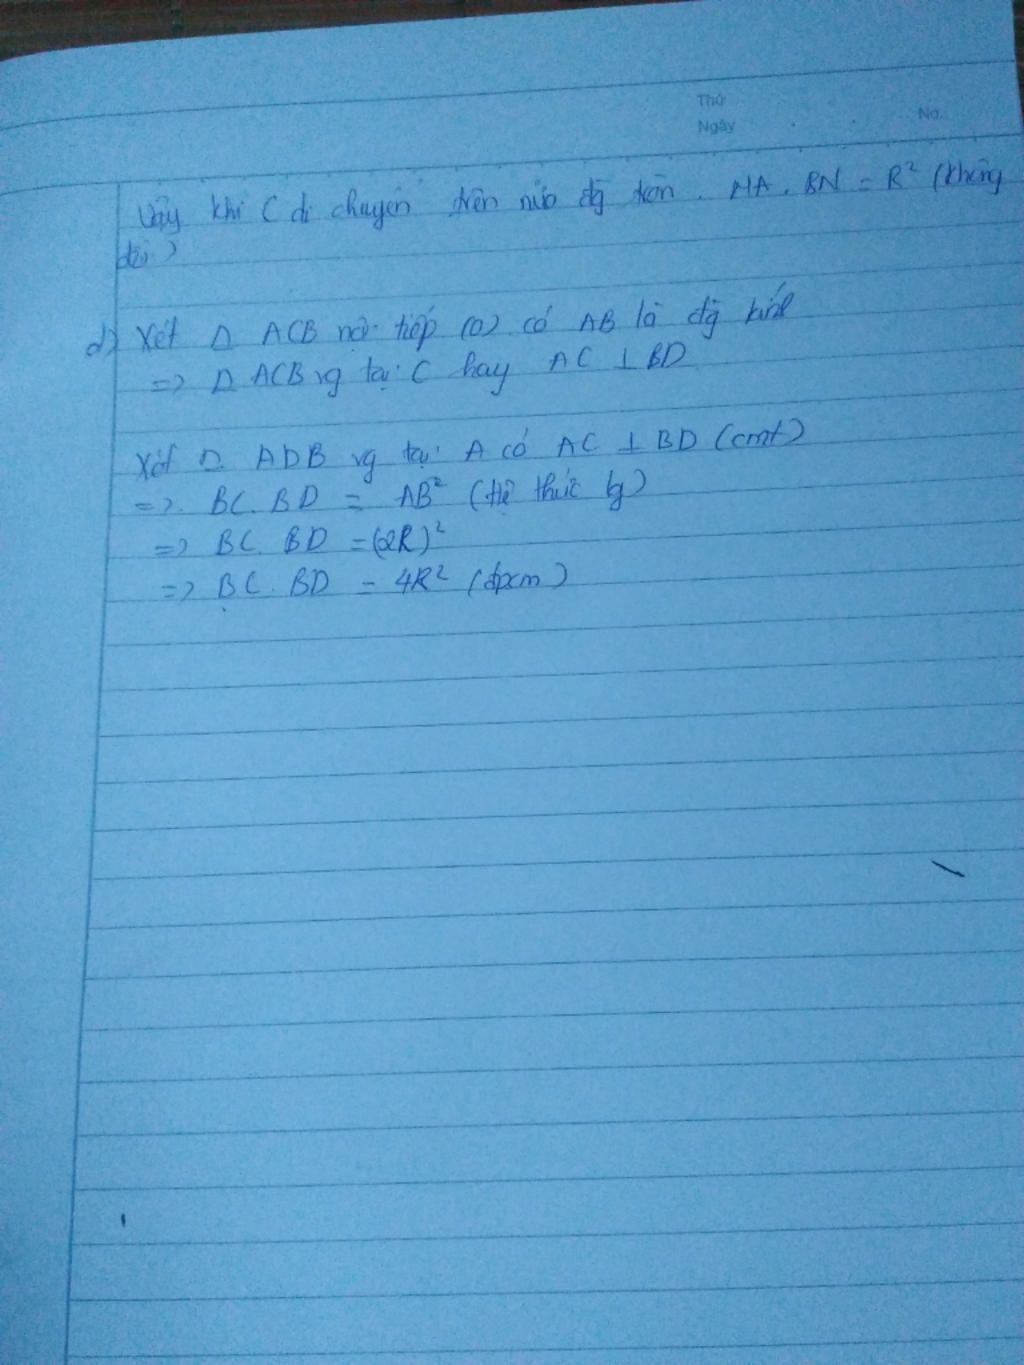 Thứ
Ngày No.
Vậy khi C di chuyển trên nửa đg tròn. MA. BN = R² (không
đổi)
d) Xét Δ ACB nội tiếp (O) có AB là đg kính
=> Δ ACB vg tại C hay AC ⊥ BD
Xét Δ ADB vg tại A có AC ⊥ BD (cmt)
=> BC. BD = AB² (Hệ thức lg)
=> BC. BD = (2R)²
=> BC. BD = 4R² (đpcm)